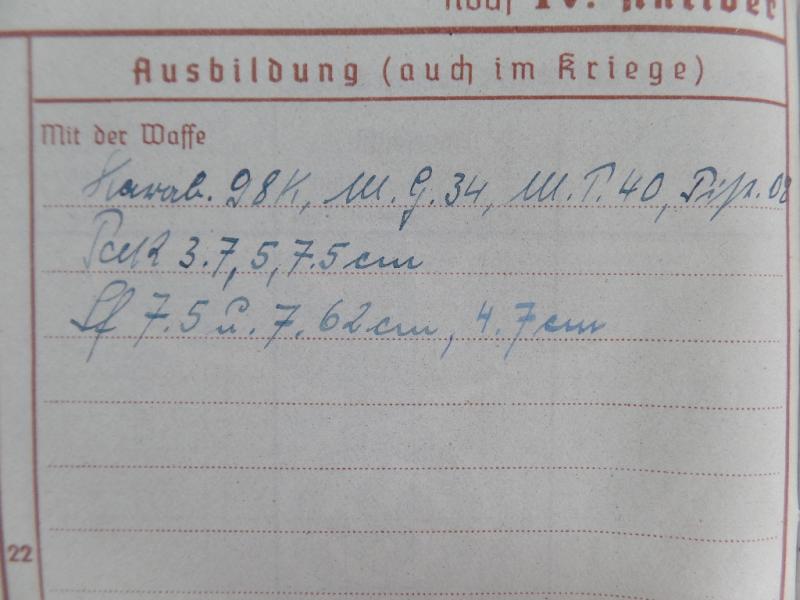 noch IV. Aktiver
Ausbildung (auch im Kriege)
Mit der Waffe
Karab. 98K, M.G.34, M.P.40, Pist. 08
Pak 3.7, 5, 7.5cm
Sf 7.5 u. 7.62cm, 4.7cm
22